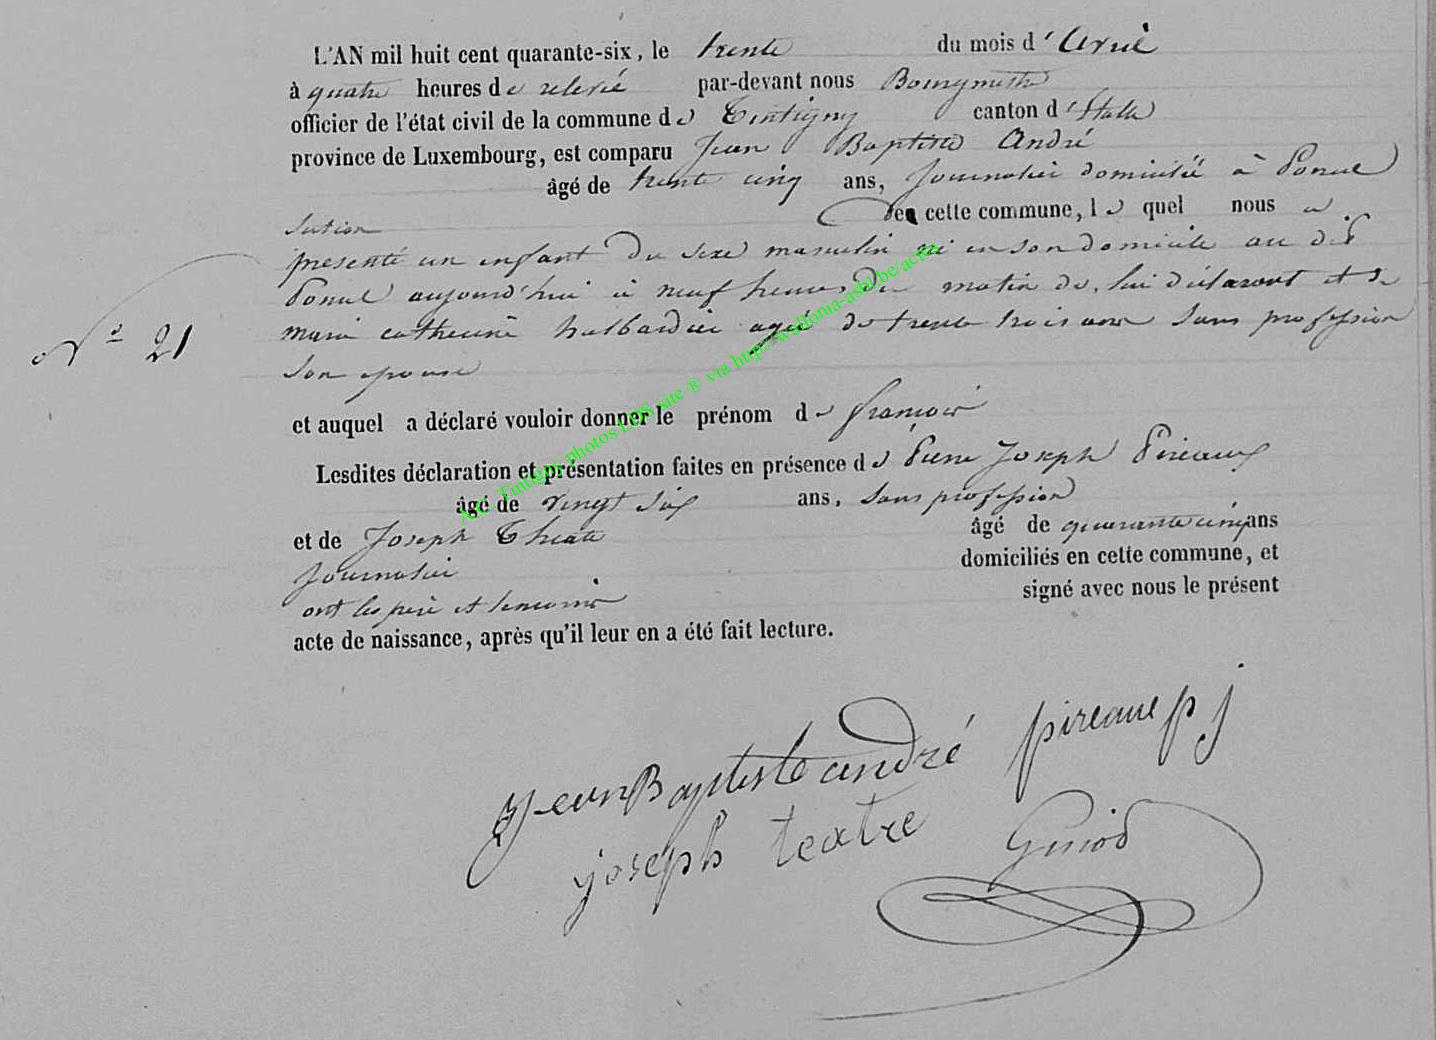 L'AN mil huit cent quarante-six, le trente du mois d'avril
à quatre heures de relevé par-devant nous Bourgmestre
officier de l'état civil de la commune de Tintigny canton d'Etalle
province de Luxembourg, est comparu Jean Baptiste André
âgé de trente cinq ans, journalier domicilié à
section de cette commune, le quel nous a
présenté un enfant du sexe masculin né en son domicile au dit
aujourd'hui à neuf heures du matin de lui déclarant et de
N° 21
marie catherine halbardier agée de trente trois ans sans profession
son epouse
et auquel a déclaré vouloir donner le prénom de françois
Lesdites déclaration et présentation faites en présence de Pierre Joseph Pireaux
âgé de vingt six ans, sans profession
et de Joseph Theatre âgé de quarante cinq ans
journalier domiciliés en cette commune, et
ont les père et temoins signé avec nous le présent
acte de naissance, après qu'il leur en a été fait lecture.
Jean Baptiste andré pireaux p j
joseph teatre
A.C. Tintigny photos LDS site ® via http://wallonia-asbl.be/actes